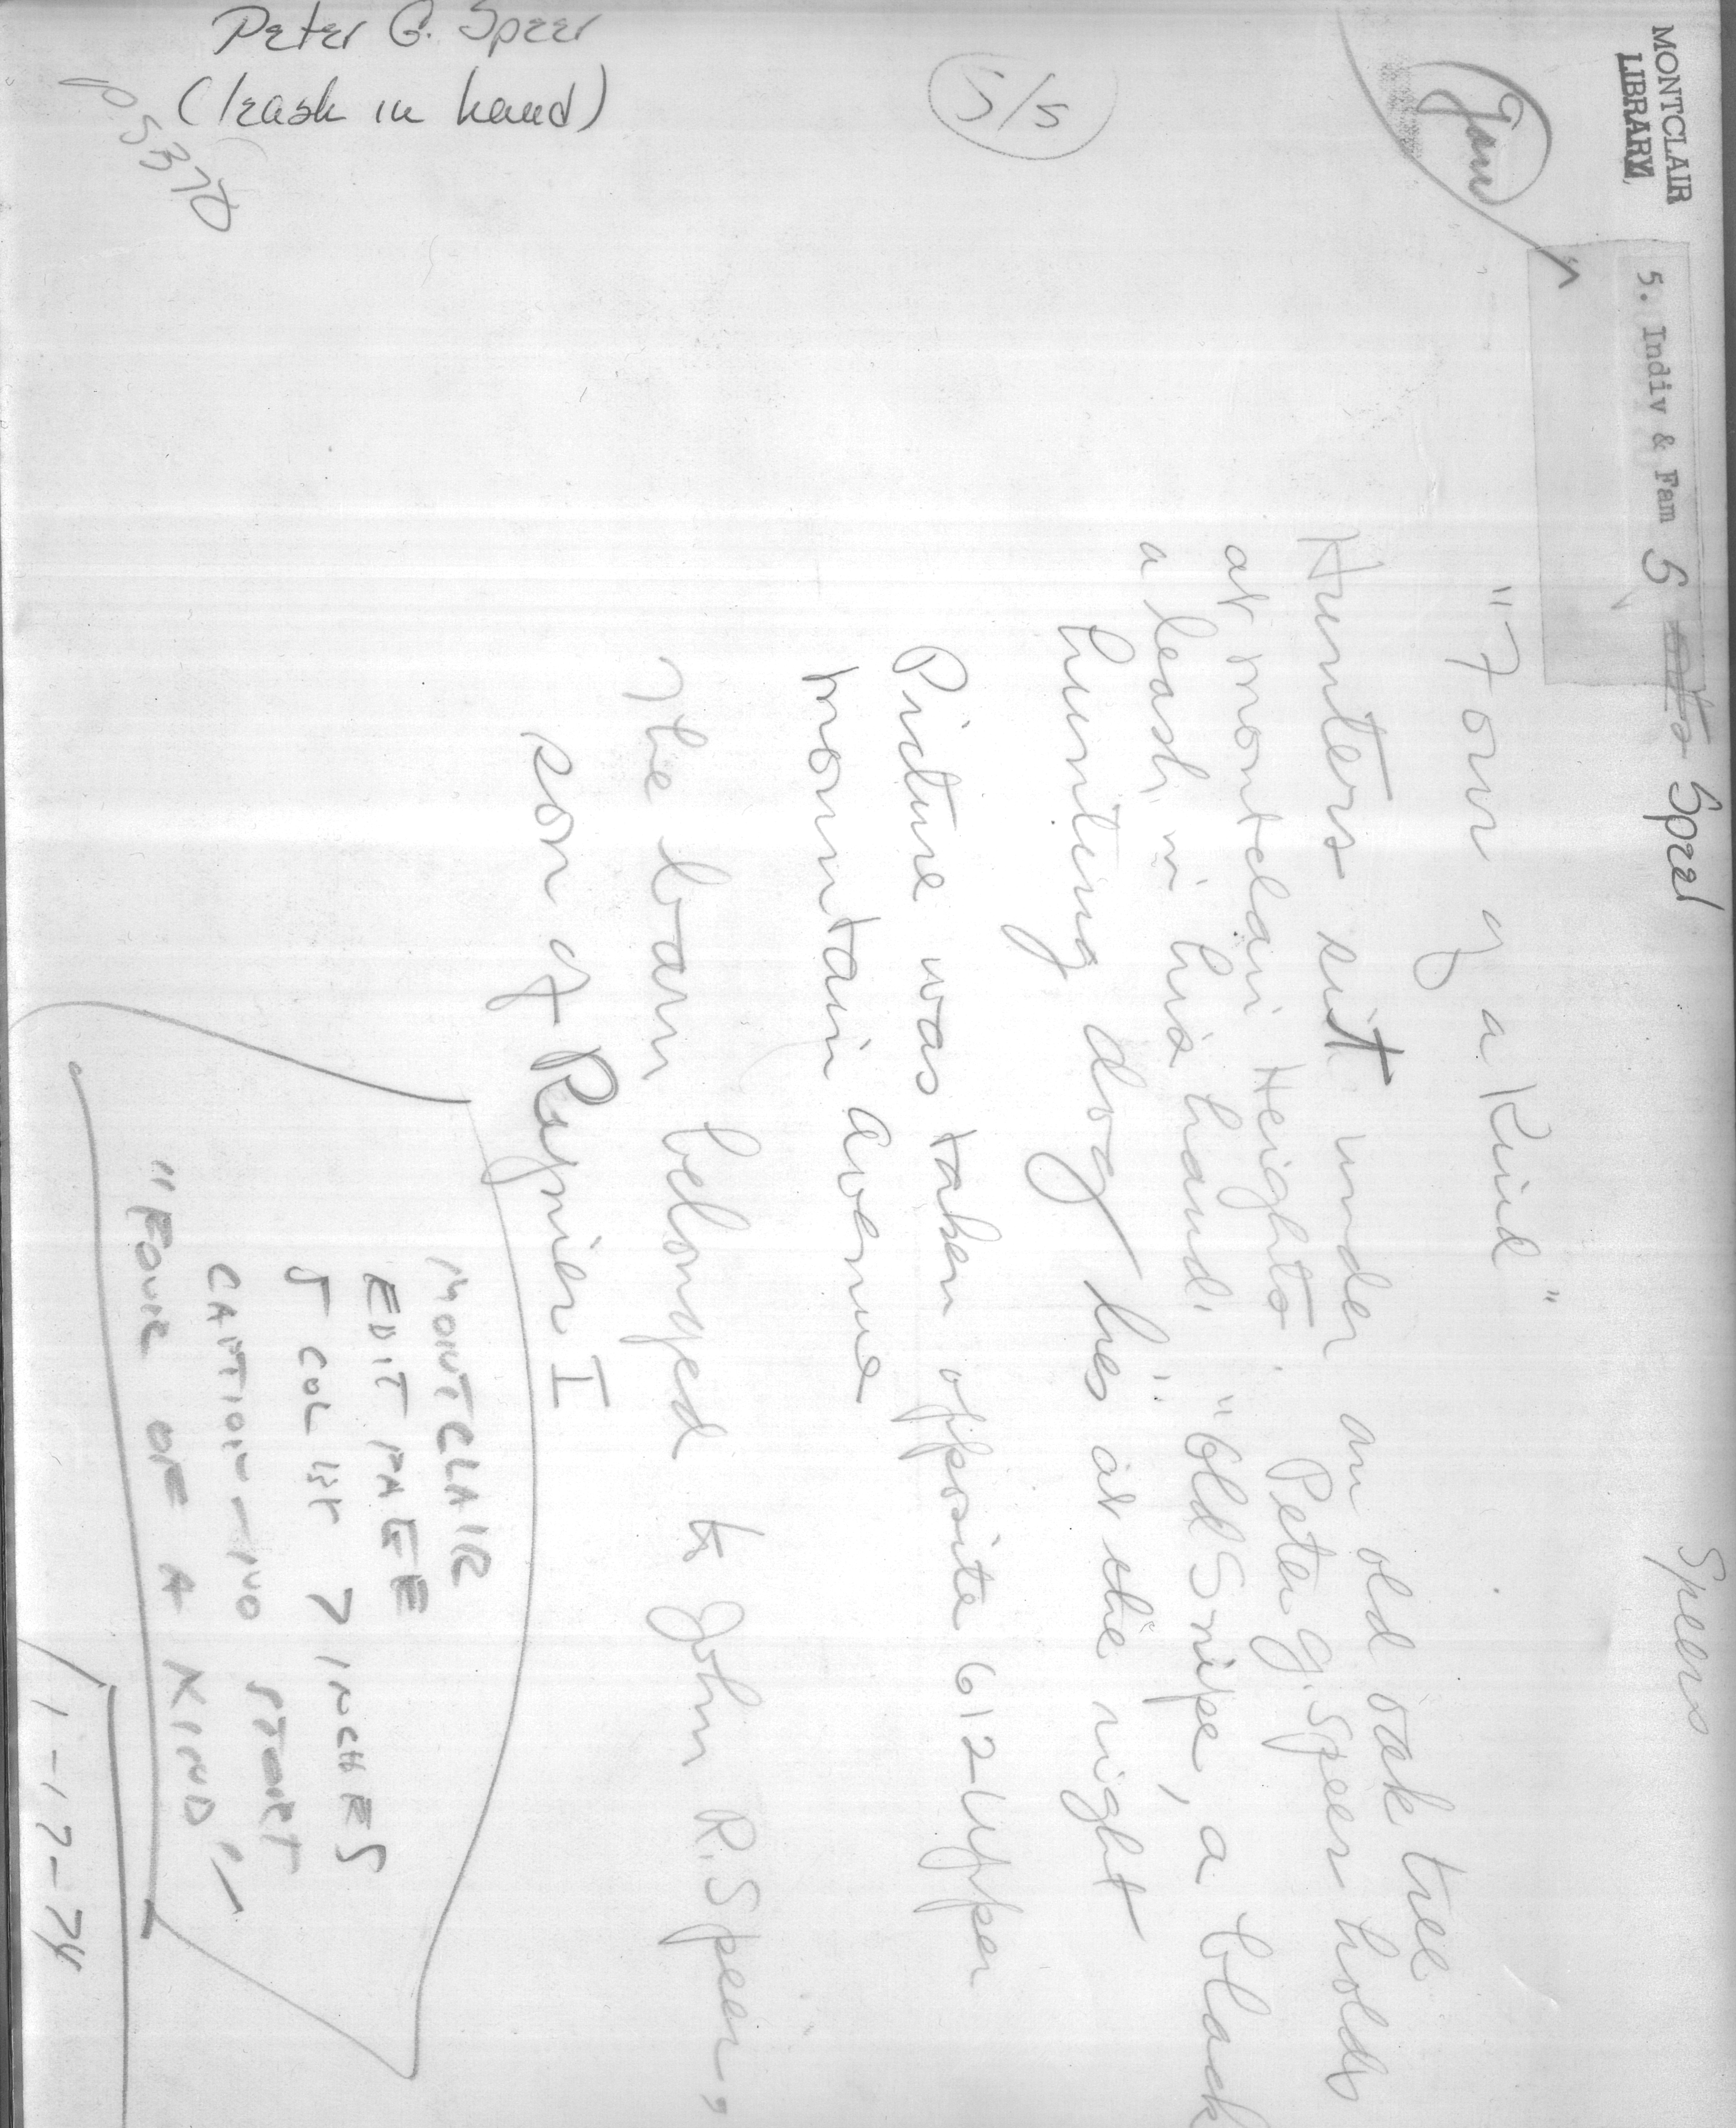 Peter G. Speer
(leash in hand)
p 5370
5/5
Jan
MONTCLAIR
LIBRARY
5. Indiv & Fam S Speer
Speers
"Four of a Kind"
Hunters sit under an old oak tree
at Montclair Heights. Peter G. Speer holds
a leash in his hand. "Old Snipe, a black
hunting dog lies at the right
Picture was taken opposite 612 Upper
Mountain Avenue
The barn belonged to John R. Speer,
son of Rynier I
MONTCLAIR
EDIT PAGE
5 COL 7 INCHES
CAPTION - IND STORY
"FOUR OF A KIND"
1-17-74